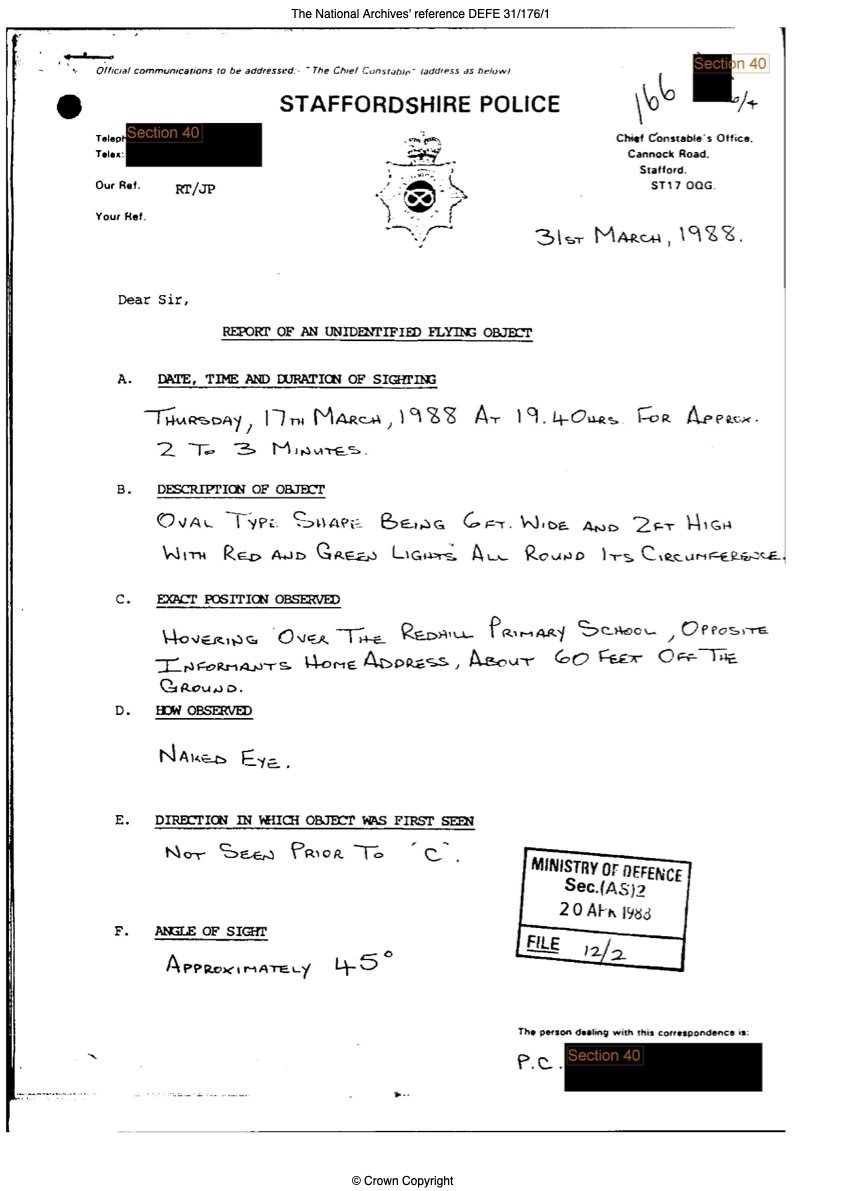 The National Archives' reference DEFE 31/176/1
Official communications to be addressed:- "The Chief Constable" (address as below)
Section 40
166
/4
STAFFORDSHIRE POLICE
Teleph Section 40
Telex:
Chief Constable's Office,
Cannock Road,
Stafford.
ST17 0QG.
Our Ref. RT/JP
Your Ref.
31ST MARCH, 1988.
Dear Sir,
REPORT OF AN UNIDENTIFIED FLYING OBJECT
A. DATE, TIME AND DURATION OF SIGHTING
THURSDAY, 17TH MARCH, 1988 AT 19.40HRS. FOR APPROX.
2 TO 3 MINUTES.
B. DESCRIPTION OF OBJECT
OVAL TYPE SHAPE BEING 6FT. WIDE AND 2FT HIGH
WITH RED AND GREEN LIGHTS ALL ROUND ITS CIRCUMFERENCE.
C. EXACT POSITION OBSERVED
HOVERING OVER THE REDHILL PRIMARY SCHOOL, OPPOSITE
INFORMANTS HOME ADDRESS, ABOUT 60 FEET OFF THE
GROUND.
D. HOW OBSERVED
NAKED EYE.
E. DIRECTION IN WHICH OBJECT WAS FIRST SEEN
NOT SEEN PRIOR TO 'C'.
MINISTRY OF DEFENCE
Sec.(AS)2
20 APR 1988
FILE 12/2
F. ANGLE OF SIGHT
APPROXIMATELY 45°
The person dealing with this correspondence is:
P.C. Section 40
© Crown Copyright